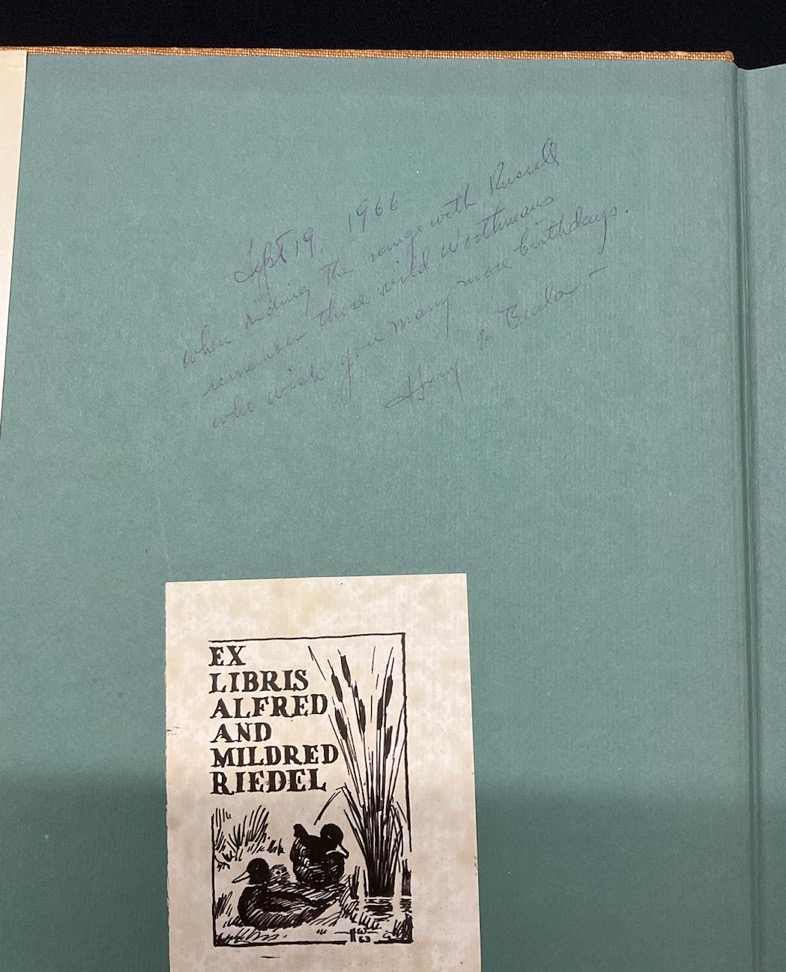 Sept 19, 1966
when riding the range with Russell
remember those wild Worthmans
who wish you many more birthdays.
Harry & Beulah
EX
LIBRIS
ALFRED
AND
MILDRED
RIEDEL